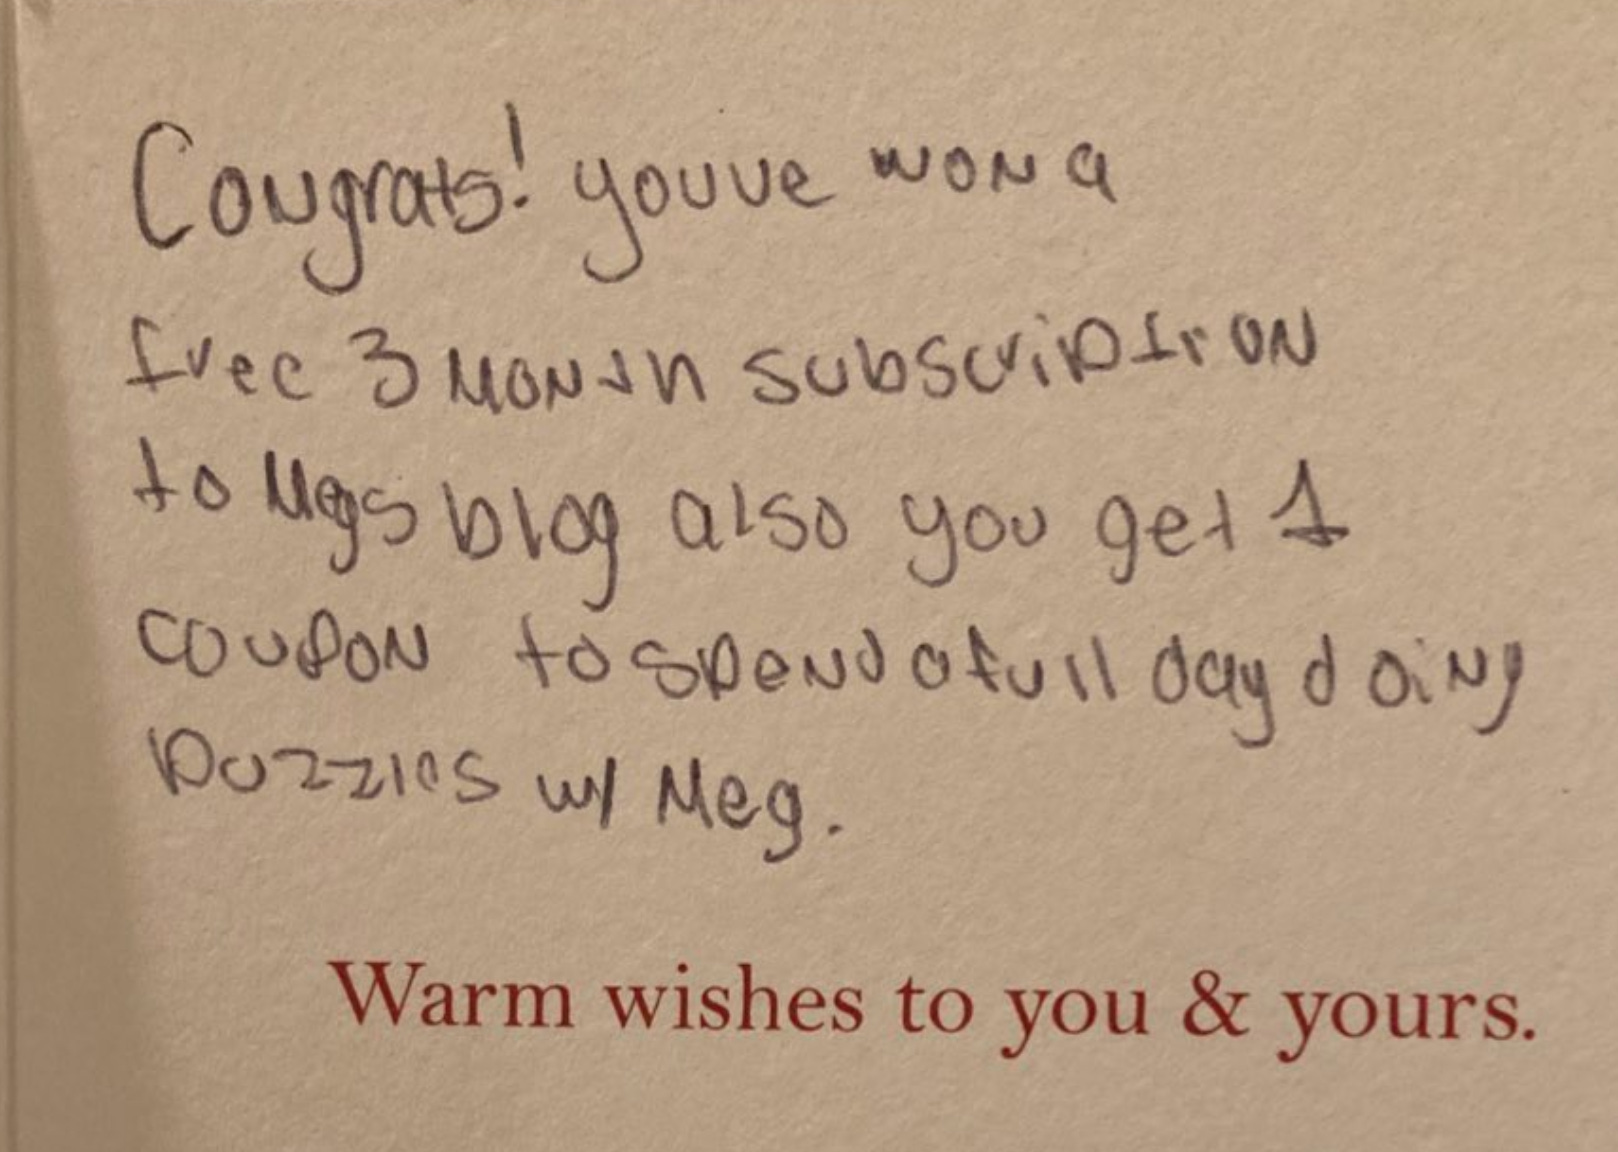 Congrats! youve won a
free 3 month subscription
to Megs blog also you get 1
coupon to spend a full day doing
puzzles w/ Meg.
Warm wishes to you & yours.